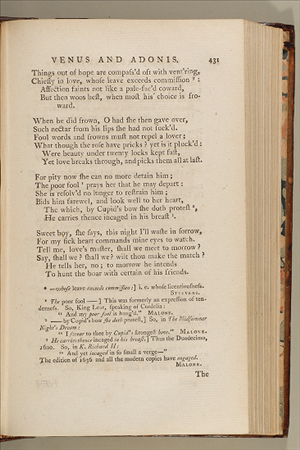 VENUS AND ADONIS. 431
Things out of hope are compass'd oft with vent'ring,
Chiefly in love, whose leave exceeds commission ⁷:
Affection faints not like a pale-fac'd coward,
But then woos best, when most his choice is fro-
ward.
When he did frown, O had she then gave over,
Such nectar from his lips she had not suck'd.
Foul words and frowns must not repel a lover;
What though the rose have pricks? yet is it pluck'd:
Were beauty under twenty locks kept fast,
Yet love breaks through, and picks them all at last.
For pity now she can no more detain him;
The poor fool ⁸ prays her that he may depart:
She is resolv'd no longer to restrain him;
Bids him farewel, and look well to her heart,
The which, by Cupid's bow she doth protest ⁹,
He carries thence incaged in his breast ¹.
Sweet boy, she says, this night I'll waste in sorrow,
For my sick heart commands mine eyes to watch.
Tell me, love's master, shall we meet to morrow?
Say, shall we? shall we? wilt thou make the match?
He tells her, no; to morrow he intends
To hunt the boar with certain of his friends.
⁷ —whose leave exceeds commission:] i. e. whose licentiousness.
STEEVENS.
⁸ The poor fool —] This was formerly an expression of ten-
derness. So, King Lear, speaking of Cordelia:
"And my poor fool is hang'd." MALONE.
⁹ — by Cupid's bow she doth protest,] So, in The Midsummer
Night's Dream:
"I swear to thee by Cupid's strongest bow." MALONE.
¹ He carries thence incaged in his breast.] Thus the Duodecimo,
1600. So, in K. Richard II:
"And yet incaged in so small a verge—"
The edition of 1636 and all the modern copies have engaged.
MALONE.
The